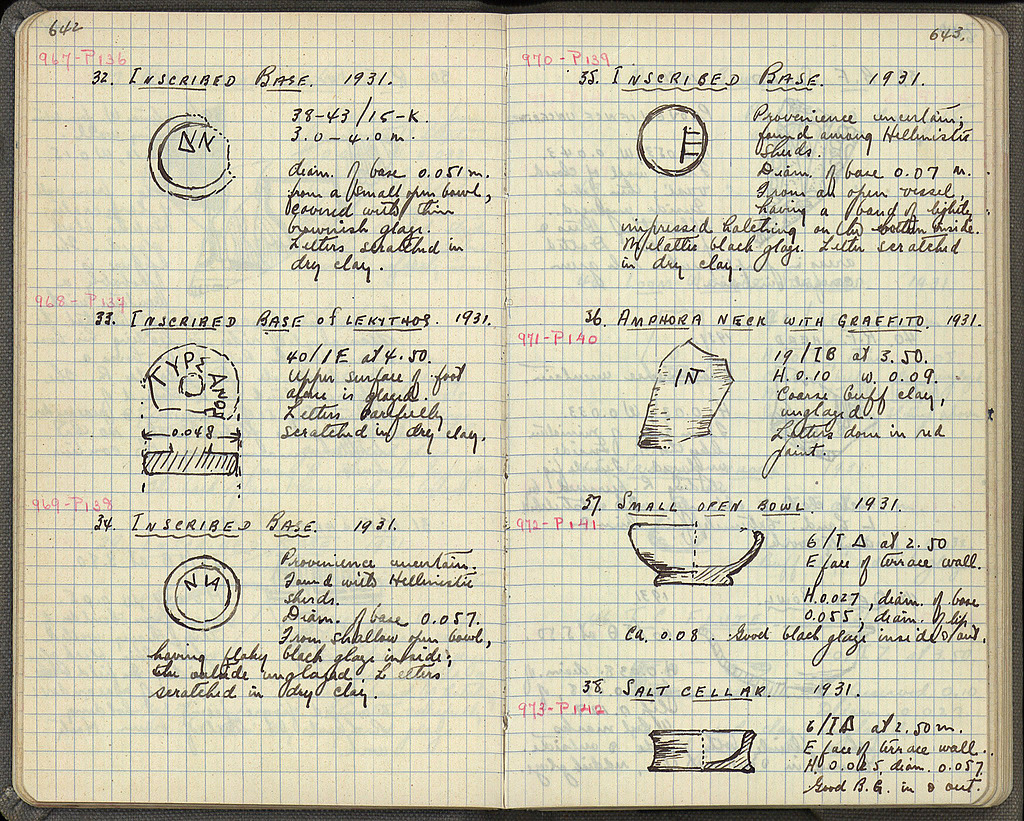 642
967-P136
32. INSCRIBED BASE. 1931.
ΔΝ
38-43/15-K.
3.0-4.0 m.
diam. of base 0.051 m.
from a small open bowl,
covered with thin
brownish glaze.
Letters scratched in
dry clay.
968-P137
33. INSCRIBED BASE of LEKYTHOS. 1931.
ΤΥΡΣ
ΑΝΟΡ
40/IE at 4.50.
Upper surface of foot
alone is glazed.
Letters carefully
scratched in dry clay.
0.048
969-P138
34. INSCRIBED BASE. 1931.
Provenience uncertain.
Found with Hellenistic
sherds.
Diam. of base 0.057.
From shallow open bowl,
having flaky black glaze inside;
the outside unglazed. Letters
scratched in dry clay.
643.
970-P139
35. INSCRIBED BASE. 1931.
Provenience uncertain;
found among Hellenistic
sherds.
Diam. of base 0.07 m.
From an open vessel,
having a band of lightly
impressed hatching on the bottom inside.
Metallic black glaze. Letter scratched
in dry clay.
36. AMPHORA NECK WITH GRAFFITO. 1931.
971-P140
ΙΝ
19/IB at 3.50.
H. 0.10 W. 0.09.
Coarse buff clay,
unglazed.
Letters done in red
paint.
37. SMALL OPEN BOWL. 1931.
972-P141
6/IΔ at 2.50
E face of terrace wall.
H. 0.027, diam. of base
0.055, diam. of lip
ca. 0.08. Good black glaze inside & out.
38. SALT CELLAR. 1931.
973-P142
6/IΔ at 2.50 m.
E face of terrace wall.
H. 0.025, diam. 0.057.
Good B.G. in & out.